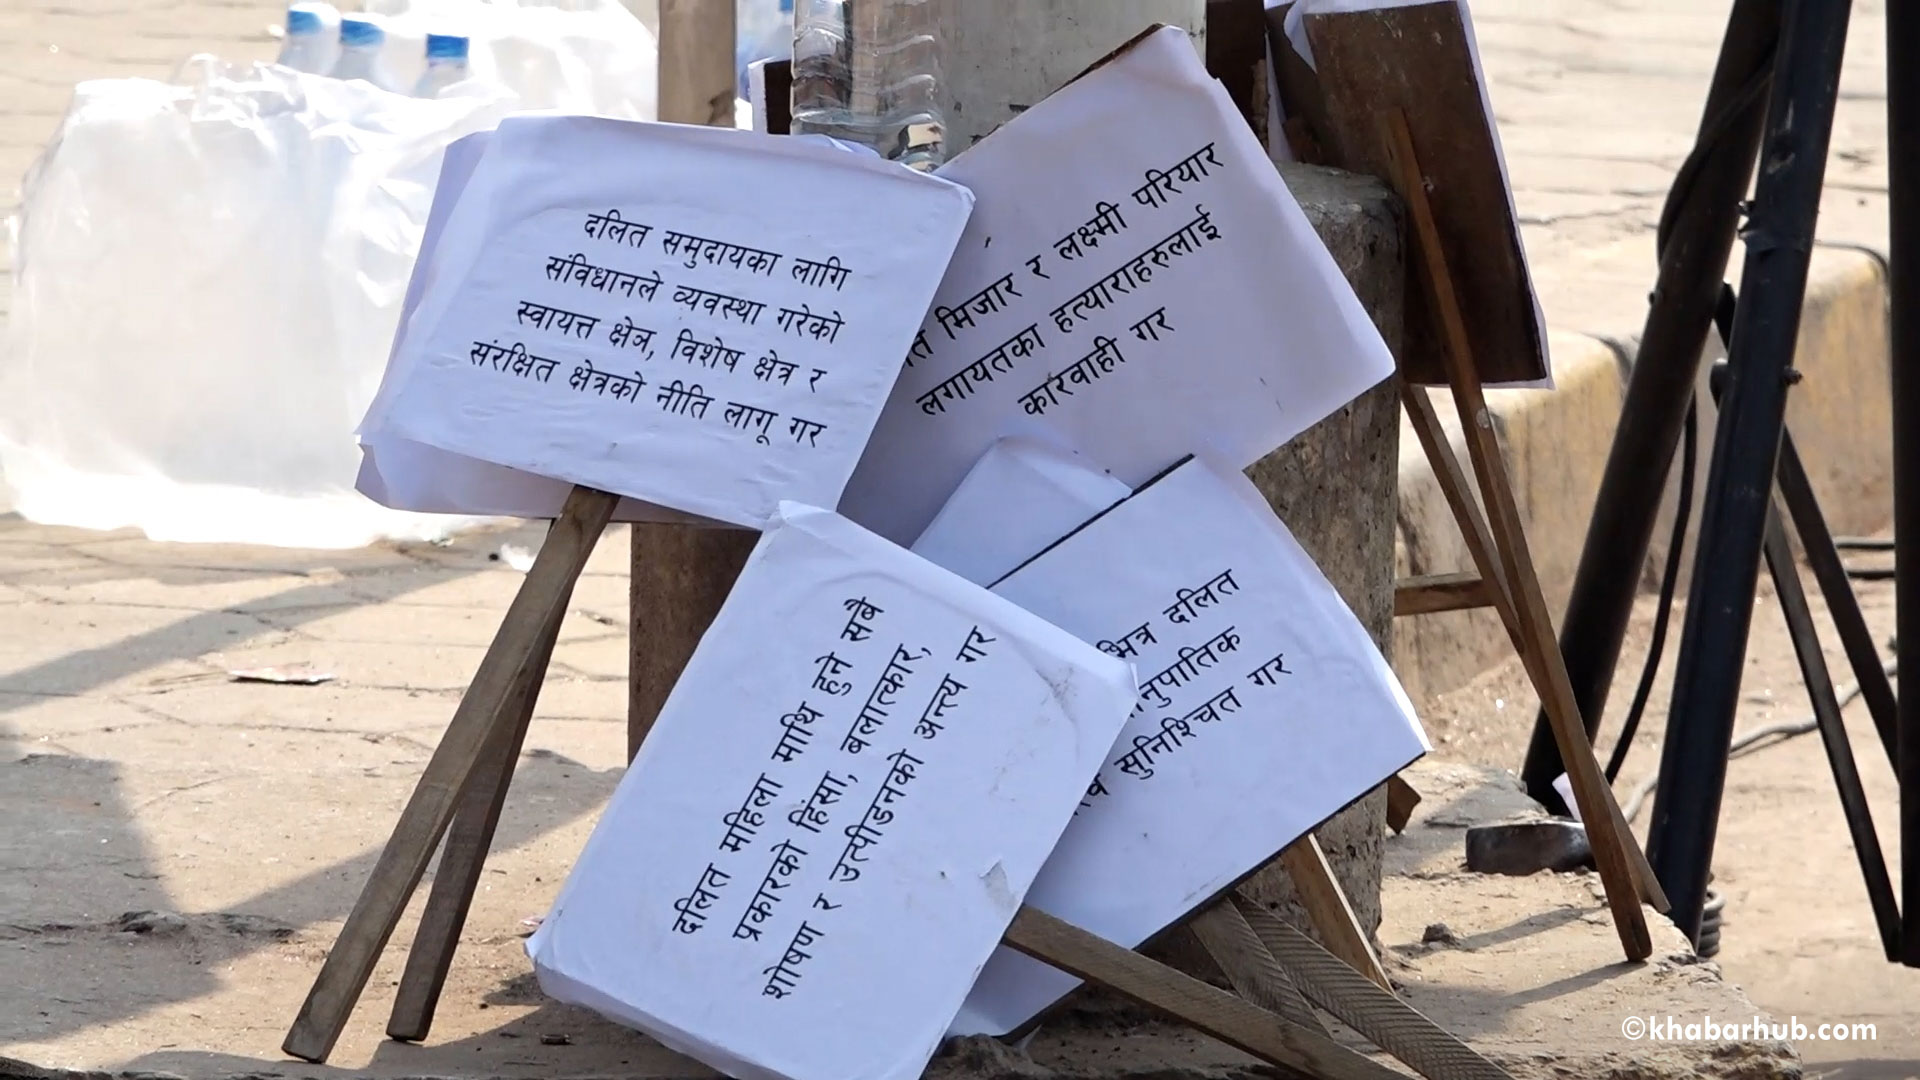 दलित समुदायका लागि
संविधानले व्यवस्था गरेको
स्वायत्त क्षेत्र, विशेष क्षेत्र र
संरक्षित क्षेत्रको नीति लागू गर
मिजार र लक्ष्मी परियार
लगायतका हत्याराहरुलाई
कारवाही गर
दलित महिला माथि हुने सबै
प्रकारको हिंसा, बलात्कार,
शोषण र उत्पीडनको अन्त्य गर
दलित
सुनिश्चित गर
©khabarhub.com